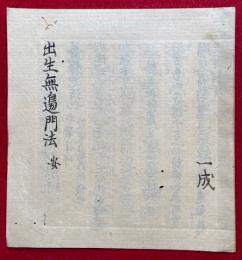 一成
出生無邊門法 安